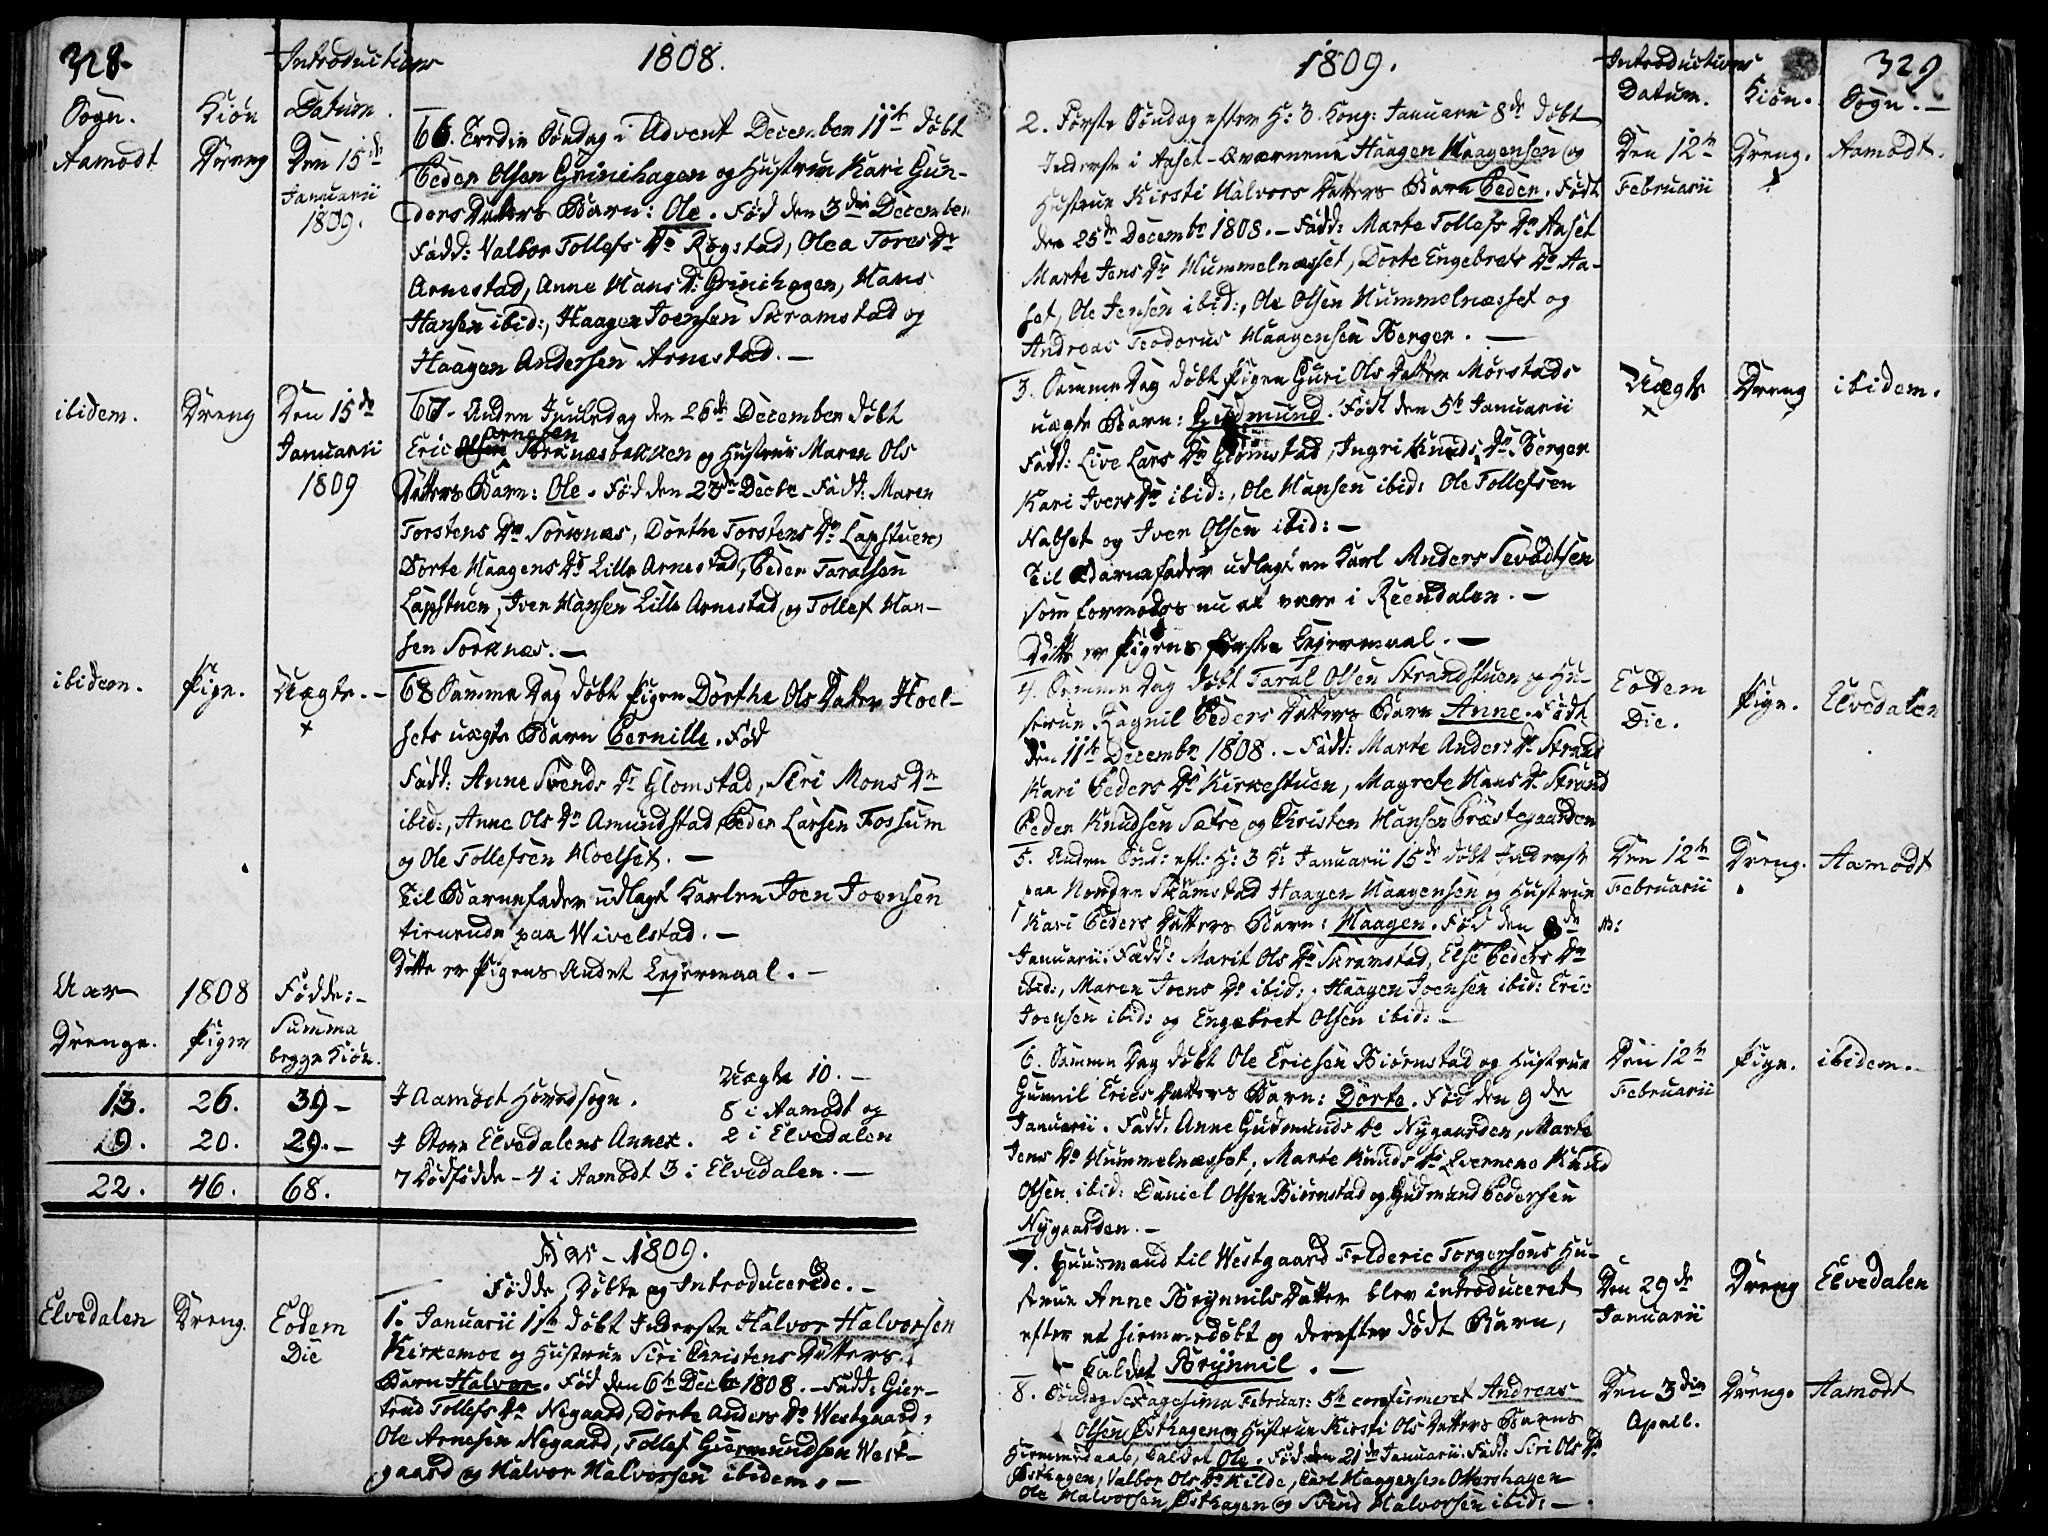 328.
1808.
Introductions
Sogn. Kiön Datum.
Aamodt Dreng Den 15de Januarii 1809.
66. Tredie Söndag i Advent December 11te döbt
Peder Olsen Grinihagen og Hustrue Kari Gun-
ders Datters Barn: Ole. Fød den 3die December
Fadd: Valbor Tollefs Dr Rogstad, Olea Tores Dr
Arnestad, Anne Hans Dr Grinihagen, Hans
Hansen ibid:, Haagen Joensen Skramstad og
Haagen Andersen Arnestad. —
ibidem. Dreng Den 15de Januarii 1809
67. Anden Juuledag den 26de December döbt
Eric Olsen Arnesen Stranæsbakken og Hustrue Maren Ols
Datters Barn: Ole. Fød den 23de Decbr. Fadd: Maren
Torstens Dr Sorknæs, Dorthe Torstens Dr Lapstuen,
Dorte Haagens Dr Lille Arnestad, Peder Taralsen
Lapstuen, Iver Hansen Lille Arnestad, og Tollef Han-
sen Sorknæs. —
ibidem. Pige. Uægte. —
68 Samme Dag döbt Pigen Dorthe Ols Datter Hoel-
sets uægte Barn Pernille. Fød
Fadd: Anne Svends Dr Glomstad, Siri Mons Dr
ibid:, Anne Ols Dr Amundstad, Peder Larsen Fossum
og Ole Tollefsen Hoelset. —
Til Barnefader udlagt Karlen Joen Joensen
tienende paa Wivelstad. —
Dette er Pigens Andet Leiermaal. —
Aar 1808 Födde: —
Drenge. Piger Summa begge Kiön.
13. 26. 39 — i Aamodt Hovedsogn.
9. 20. 29. — i Store Elvedalens Annex.
22. 46. 68.
Uægte 10. —
8 i Aamodt og
2 i Elvedalen
7 Dödfödde — 4 i Aamodt 3 i Elvedalen. —
Aar 1809.
Födde, Döbte og Introducerede. —
Elvedalen Dreng. Eodem Die
1. Januarii 1ste döbt Inderste Halvor Halvorsen
Kirkemoe og Hustrue Siri Christens Datters
Barn Halvor. Fød den 6te Decbr 1808. — Fadd: Gier-
trud Tollefs Dr Negaard, Dorte Anders Dr Westgaard,
Ole Arnesen Negaard, Tollef Giermundsen West-
gaard og Halvor Halvorsen ibidem. —
1809.
329
Introductions
Datum. Kiön. Sogn. —
2. Förste Söndag efter H: 3 Kong: Januarii 8de döbt
Inderste i Aaset-Qværnene Haagen Haagensen og
Hustrue Kirsti Halvors Datters Barn Peder. Födt
den 25de Decembr 1808. — Fadd: Marte Tollefs Dr Aaset
Marte Jens Dr Hummelnæsset, Dorte Engebrets Dr Aa-
set, Ole Jensen ibid:, Ole Olsen Hummelnæsset og
Andreas Teodorus Haagensen Berger. —
Den 12te Februarii Dreng. Aamodt.
3. Samme Dag döbt Pigen Guri Ols Datter Mörstads
uægte Barn: Gudmund. Födt den 5te Januarii
Fadd: Live Lars Dr Glomstad, Ingri Knuds Dr Berger
Kari Ivers Dr ibid:, Ole Hansen ibid: Ole Tollefsen
Nabset og Iver Olsen ibid: —
Til Barnefader udlagt en Karl Anders Sevadtsen
som formodes nu at være i Reendalen. —
Dette er Pigens første Leiermaal. —
Uægte Dreng ibidem.
4. Samme Dag döbt Taral Olsen Strandstuen og Hu-
strue Ragnil Peders Datters Barn Anne. Födt
den 11te Decembr 1808. — Fadd: Marte Anders Dr Strand
Kari Peders Dr Kirkestuen, Magrete Hans Dr Strand
Peder Knudsen Sætre og Christen Hansen Præstegaarden
Eodem Die. Pige. Elvedalen
5. Anden Sönd: eft: H: 3 K: Januarii 15de döbt Inderste
paa Nordre Skramstad Haagen Haagensen og Hustrue
Kari Peders Datters Barn: Haagen. Fød den de
Januarii Fadd: Marit Ols Dr Skramstad, Else Peders Dr
ibid:, Maren Joens Dr ibid:, Haagen Joensen ibid: Eric
Joensen ibid: og Engebret Olsen ibid: —
Den 12te Februarii Dreng. Aamodt
6. Samme Dag döbt Ole Ericsen Biörnstad og Hustrue
Gunnil Erics Datters Barn: Dorte. Fød den 9de
Januarii. Fadd: Anne Gudmunds Dr Nygaarden, Marte
Jens Dr Hummelnæsset, Marte Knuds Dr Qvernene Knud
Olsen ibid: Daniel Olsen Biörnstad og Gudmund Pedersen
Nygaarden. —
Den 12te Februarii Pige. ibidem. —
7. Huusmand til Westgaard Frederic Torgersens Hu-
strue Anne Brynnils Datter blev introduceret
efter et hiemmedöbt og derefter dödt Barn,
kaldet Brynnil. —
Den 29de Januarii Dreng Elvedalen
8. Söndag Sexagesima Februar: 5te confirmeret Andreas
Olsen Østhagen og Hustrue Kirsti Ols Datters Barns
Hiemmedaab, kaldet Ole. Fød den 21de Januarii. Fadd: Siri Ols Dr
Østhagen, Valbor Ols Dr Kilde, Carl Haagensen Ottershagen
Ole Halvorsen Østhagen og Svend Halvorsen ibid: —
Den 3die April. Dreng. Aamodt